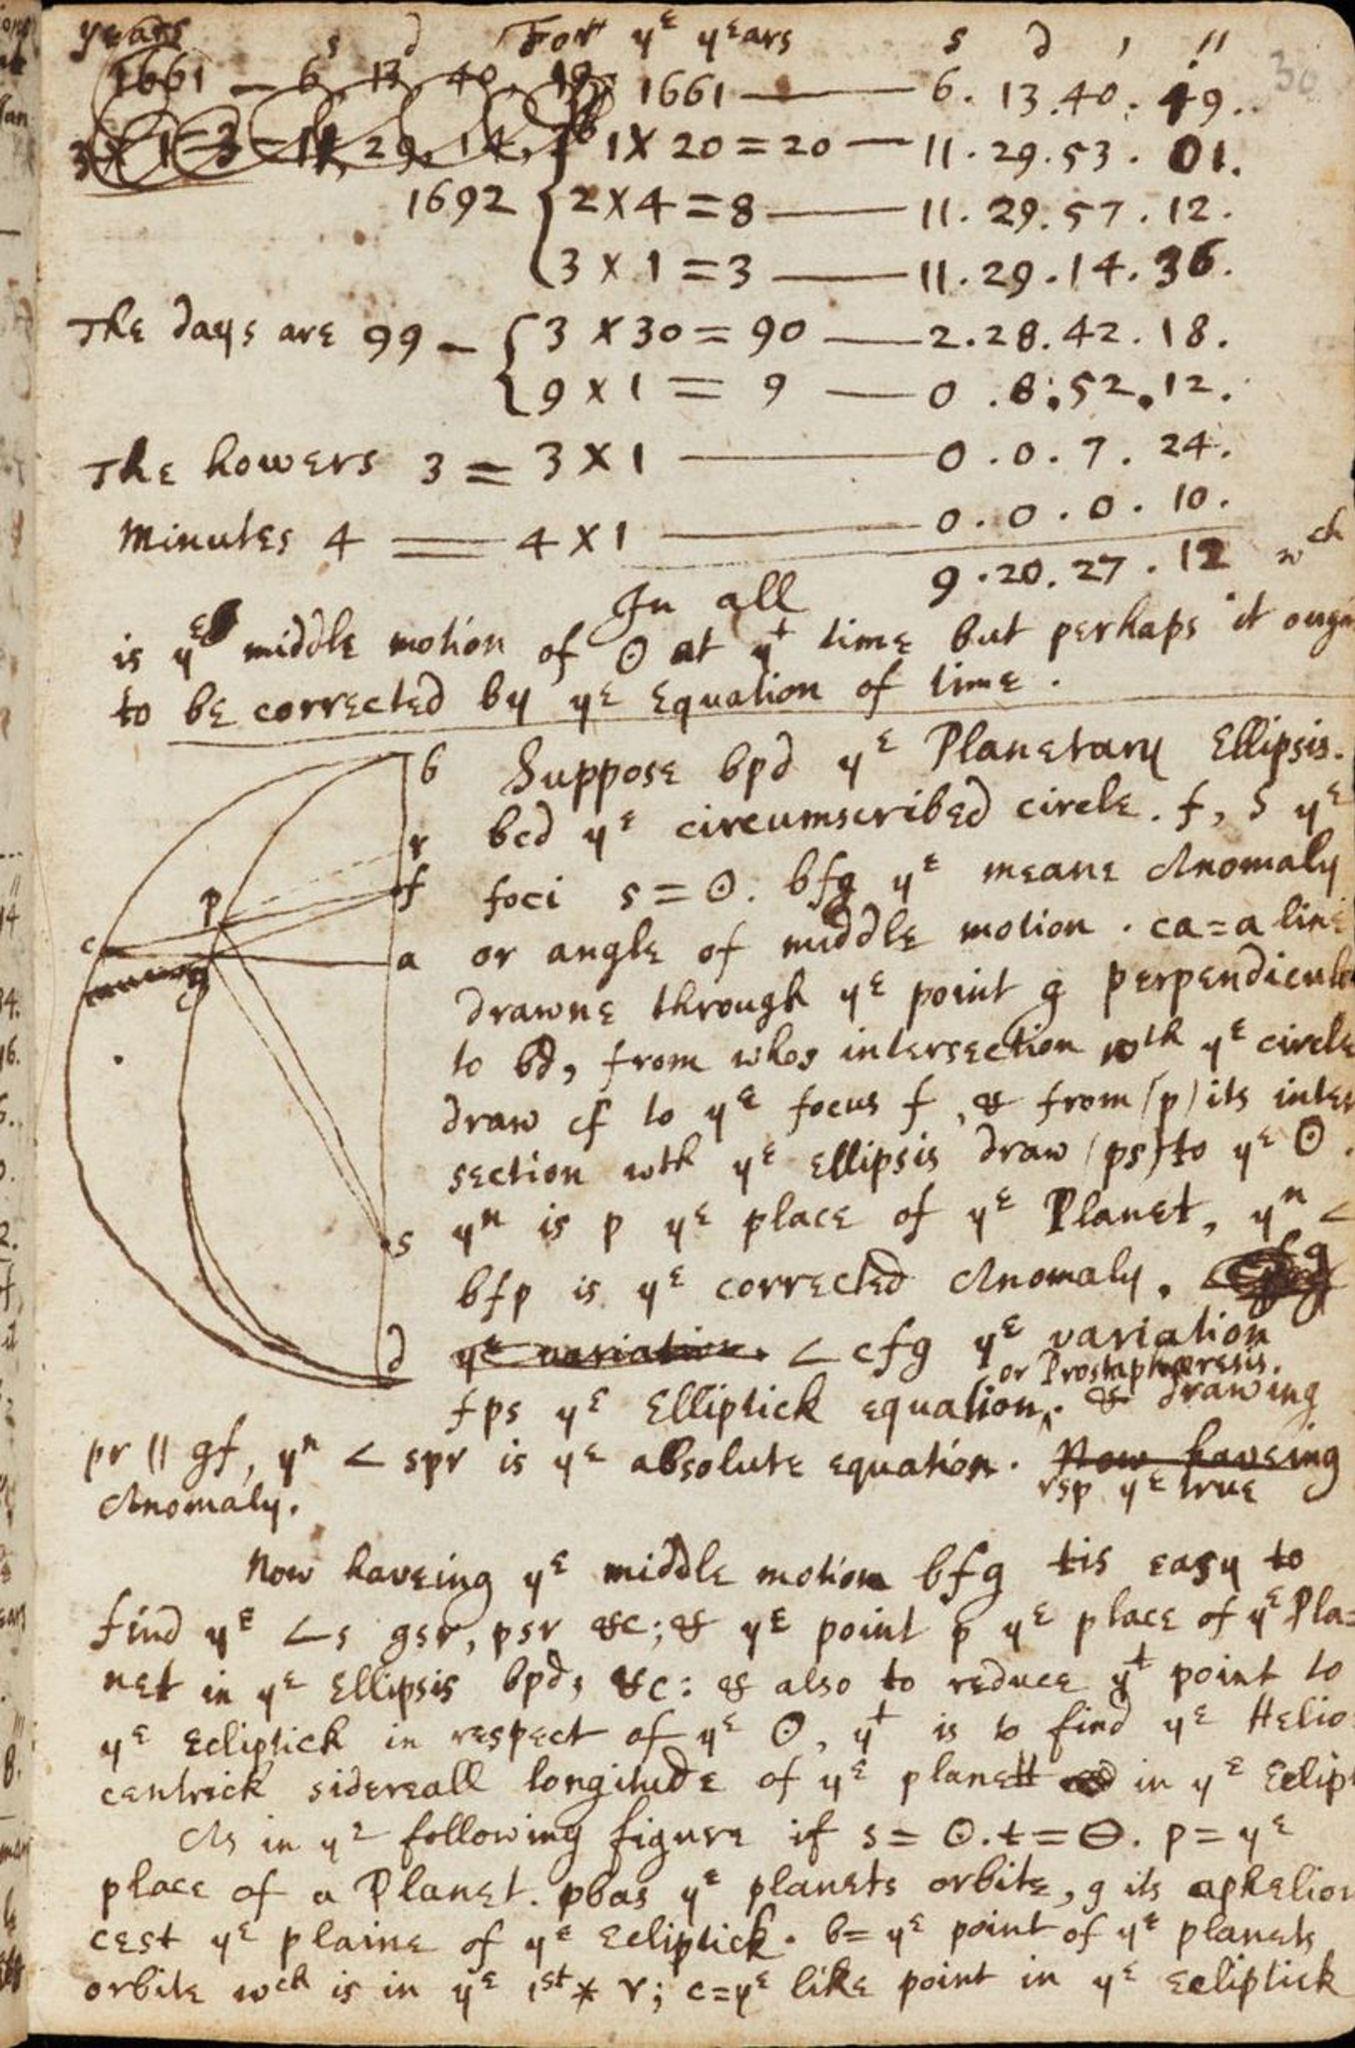 years s d For yᵉ yeares s d ′ ″ 30
1661 — 6, 13, 40, 1661 — 6. 13. 40. 49.
3 × 1 = 3 = 11, 29, 14, 1 × 20 = 20 — 11. 29. 53. 01.
1692 { 2 × 4 = 8 — 11. 29. 57. 12.
3 × 1 = 3 — 11. 29. 14. 36.
The days are 99 — { 3 × 30 = 90 — 2. 28. 42. 18.
9 × 1 = 9 — 0. 8. 52. 12.
The howers 3 = 3 × 1 — 0. 0. 7. 24.
Minutes 4 = 4 × 1 — 0. 0. 0. 10.
In all 9. 20. 27. 12 wᶜʰ
is yᵉ middle motion of ☉ at yᵗ time but perhaps it ough
to be corrected by yᵉ Equation of time.
b Suppose bpd yᵉ Planetary Ellipsis.
r bcd yᵉ circumscribed circle. f, s yᵉ
p f foci s = ☉. bfg yᵉ meane Anomaly
c a or angle of middle motion. ca = a line
g drawne through yᵉ point g perpendicul
to bd, from whos intersection wᵗʰ yᵉ circle
draw cf to yᵉ focus f, & from (p) its inter
section wth yᵉ Ellipsis draw (ps) to yᵉ ☉.
s yⁿ is p yᵉ place of yᵉ Planet, yⁿ <
bfp is yᵉ corrected Anomaly.
d yᵉ variation. < cfg yᵉ variation
fps yᵉ Elliptick equation, or Prostaphæresis. & drawing
pr || gf, yⁿ < spr is yᵉ absolute equation. Now haveing
rsp yᵉ true
Anomaly.
Now haveing yᵉ middle motion bfg tis easy to
find yᵉ <s gsr, psr &c; & yᵉ point p yᵉ place of yᵉ Pla=
net in yᵉ Ellipsis bpd, &c: & also to reduce yᵗ point to
yᵉ Ecliptick in respect of yᵉ ☉, yᵗ is to find yᵉ Helio
centrick sidereall longitude of yᵉ planett in yᵉ Eclipt
As in yᵉ following figure if s = ☉. t = ⊖. p = yᵉ
place of a Planet. pbas yᵉ planets orbite, g its aphelion
cest yᵉ plaine of yᵉ Ecliptick. b = yᵉ point of yᵉ planets
orbite wch is in yᵉ 1ˢᵗ * ♈; c = yᵉ like point in yᵉ Ecliptick